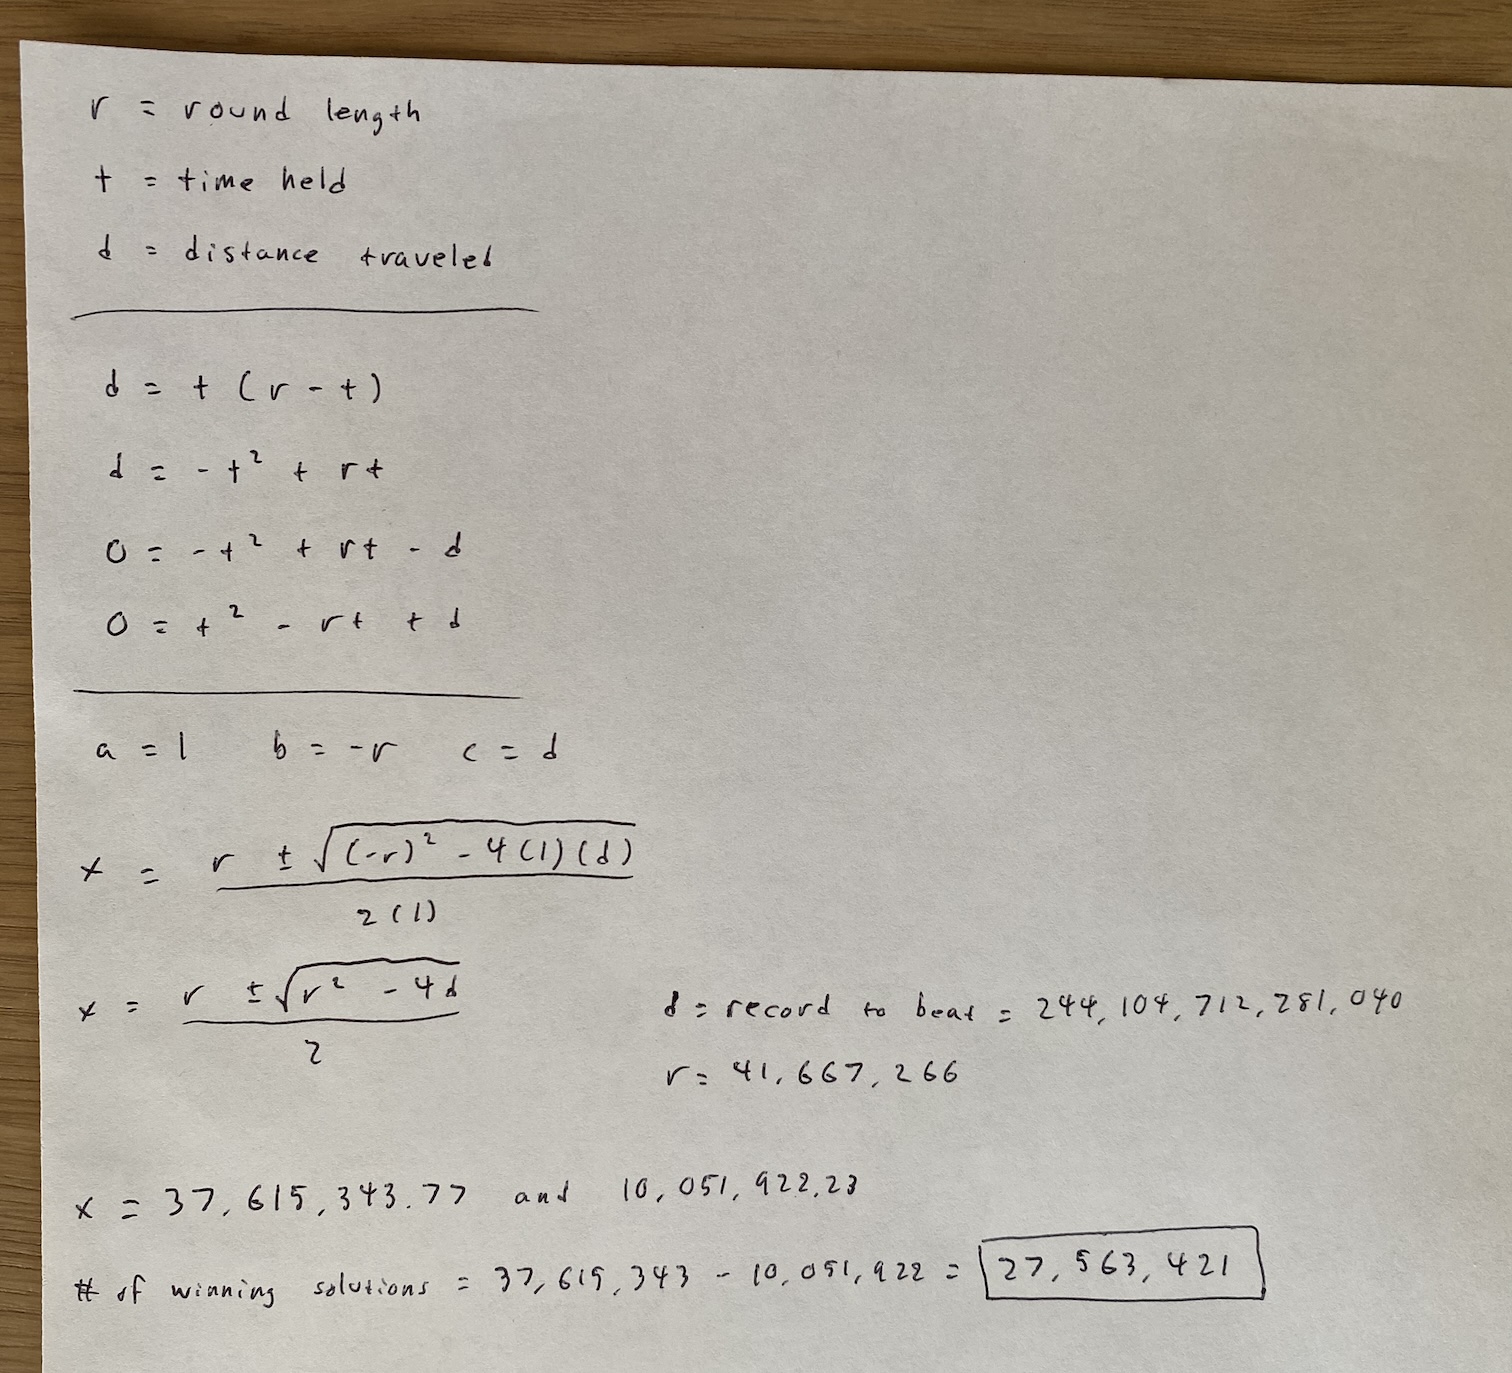 r = round length
t = time held
d = distance traveled
d = t (r - t)
d = -t² + rt
0 = -t² + rt - d
0 = t² - rt + d
a = 1 b = -r c = d
x = r ± √(-r)² - 4(1)(d)
2(1)
x = r ± √r² - 4d
2
d = record to beat = 244,104,712,281,040
r = 41,667,266
x = 37,615,343.77 and 10,051,922.23
# of winning solutions = 37,615,343 - 10,051,922 = 27,563,421